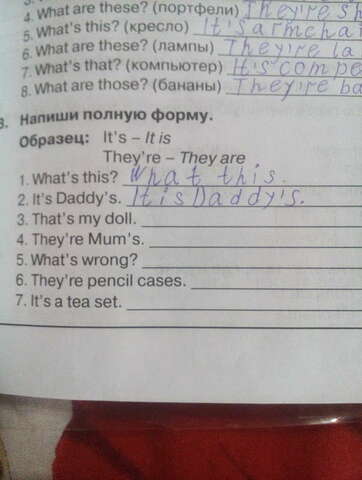 4. What are these? (портфели) They're s
5. What's this? (кресло) It's armchai
6. What are these? (лампы) They're la
7. What's that? (компьютер) It's compe
8. What are those? (бананы) They're ba
3. Напиши полную форму.
Образец: It's – It is
They're – They are
1. What's this? What this.
2. It's Daddy's. It is Daddy's.
3. That's my doll.
4. They're Mum's.
5. What's wrong?
6. They're pencil cases.
7. It's a tea set.